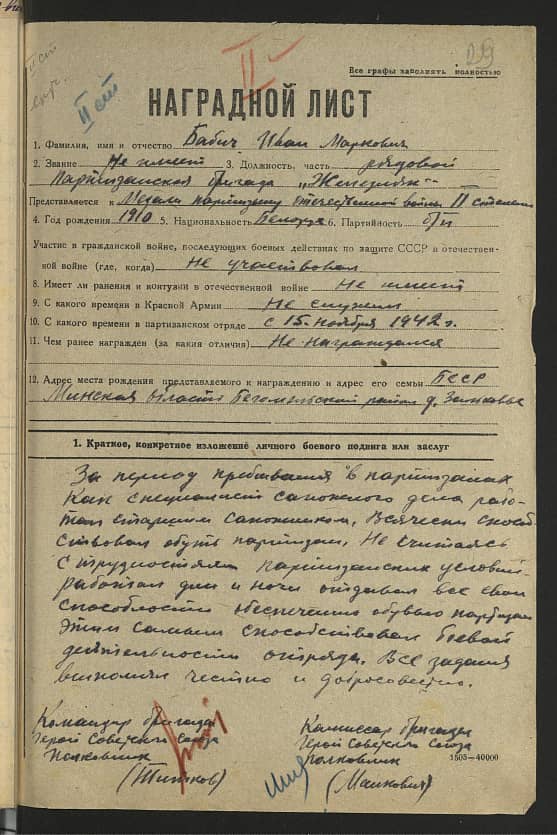 29
II
Все графы заполнять полностью
II ст
НАГРАДНОЙ ЛИСТ
1. Фамилия, имя и отчество Бабич Иван Маркович
2. Звание Не имеет 3. Должность, часть рядовой
Партизанская бригада „Железняк“
Представляется к Медали партизану отечественной войны II степени
4. Год рождения 1910 5. Национальность Белорус 6. Партийность б/п
Участие в гражданской войне, последующих боевых действиях по защите СССР в отечествен-
ной войне (где, когда) Не участвовал
8. Имеет ли ранения и контузии в отечественной войне Не имеет
9. С какого времени в Красной Армии Не служил
10. С какого времени в партизанском отряде с 15 ноября 1942 г.
11. Чем ранее награжден (за какия отличия) Не награждался
12. Адрес места рождения представляемого к награждению и адрес его семьи БССР
Минская область Бегомльский район д.
1. Краткое, конкретное изложение личного боевого подвига или заслуг
За период пребывания в партизанах
как специалист сапожного дела рабо-
тал старшим сапожником. Всячески способ
ствовал обуть партизан. Не считаясь
с трудностями партизанских условий
работал дни и ночи отдавал все свои
способности обеспечить обувью партизан
Этим самым способствовал боевой
деятельности отряда. Все задания
выполнял честно и добросовестно.
Командир бригады
Герой Советского Союза
Полковник
(Титков)
Комиссар бригады
Герой Советского Союза
Полковник
1505—40000
(Манкович)